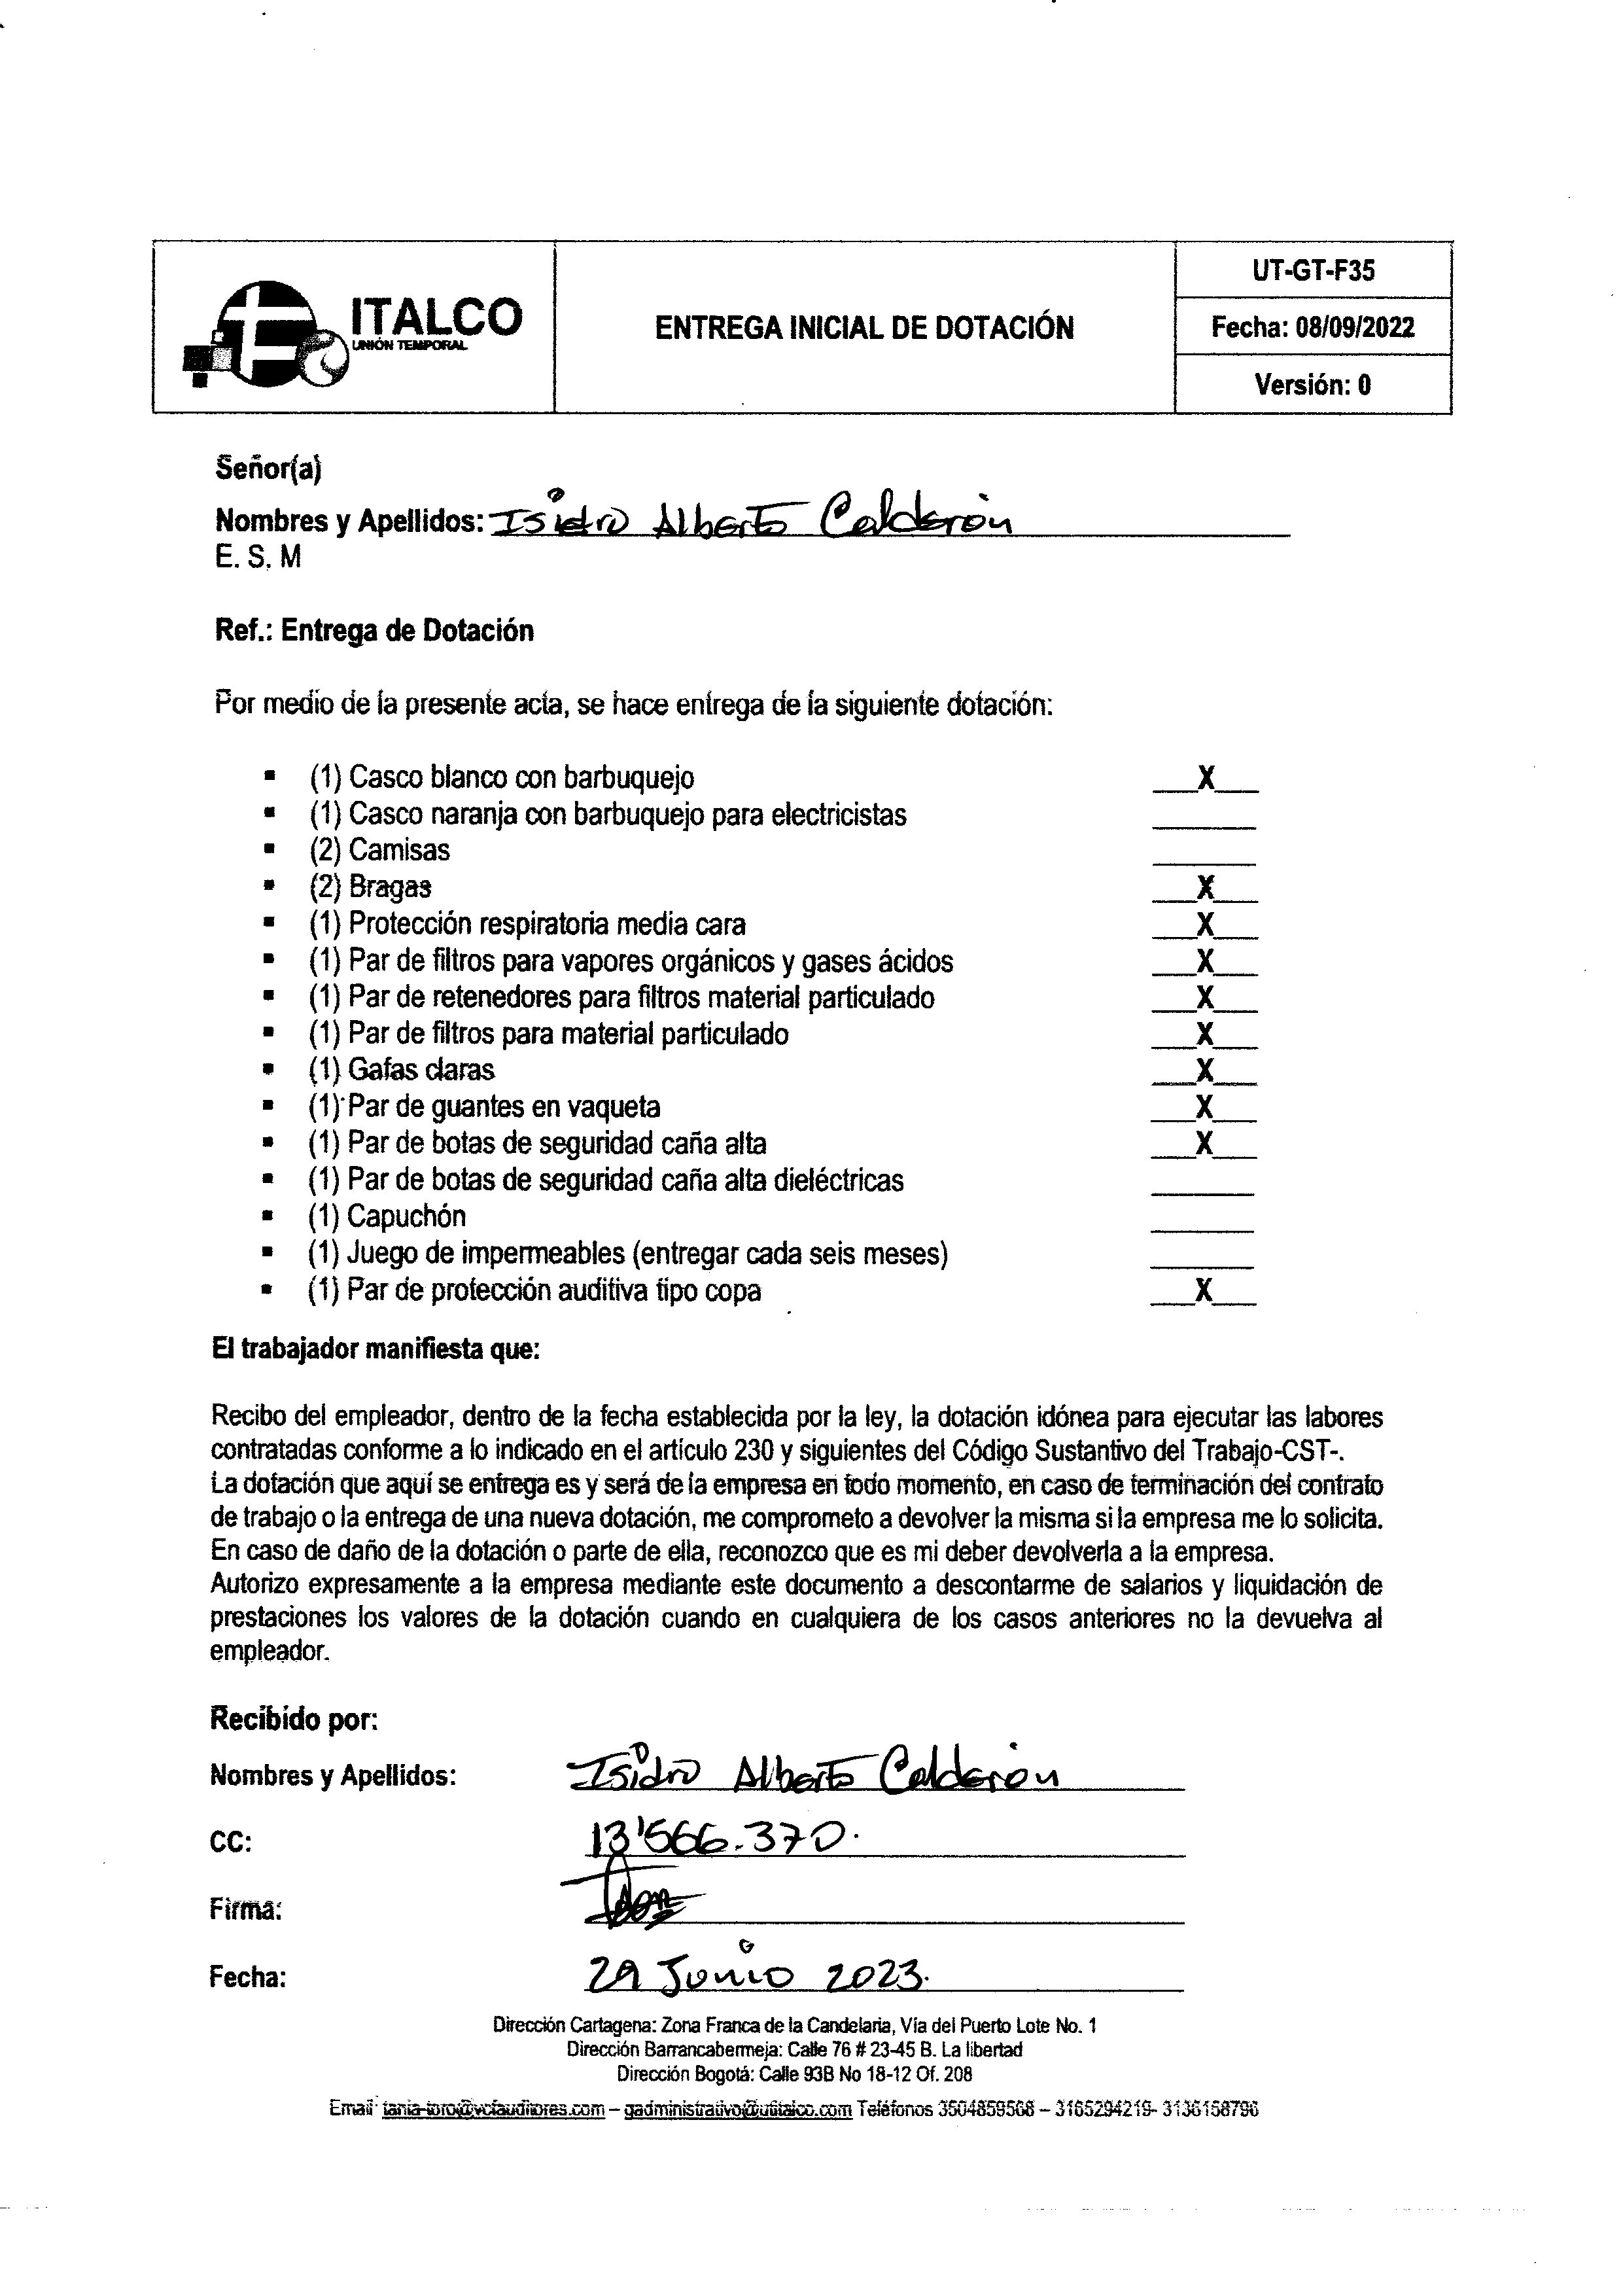 ITALCO
UNIÓN TEMPORAL
ENTREGA INICIAL DE DOTACIÓN
UT-GT-F35
Fecha: 08/09/2022
Versión: 0
Señor(a)
Nombres y Apellidos: Isidro Alberto Calderón
E. S. M
Ref.: Entrega de Dotación
Por medio de la presente acta, se hace entrega de la siguiente dotación:
▪ (1) Casco blanco con barbuquejo ___X___
▪ (1) Casco naranja con barbuquejo para electricistas _______
▪ (2) Camisas _______
▪ (2) Bragas ___X___
▪ (1) Protección respiratoria media cara ___X___
▪ (1) Par de filtros para vapores orgánicos y gases ácidos ___X___
▪ (1) Par de retenedores para filtros material particulado ___X___
▪ (1) Par de filtros para material particulado ___X___
▪ (1) Gafas claras ___X___
▪ (1) Par de guantes en vaqueta ___X___
▪ (1) Par de botas de seguridad caña alta ___X___
▪ (1) Par de botas de seguridad caña alta dieléctricas _______
▪ (1) Capuchón _______
▪ (1) Juego de impermeables (entregar cada seis meses) _______
▪ (1) Par de protección auditiva tipo copa ___X___
El trabajador manifiesta que:
Recibo del empleador, dentro de la fecha establecida por la ley, la dotación idónea para ejecutar las labores
contratadas conforme a lo indicado en el artículo 230 y siguientes del Código Sustantivo del Trabajo-CST-.
La dotación que aquí se entrega es y será de la empresa en todo momento, en caso de terminación del contrato
de trabajo o la entrega de una nueva dotación, me comprometo a devolver la misma si la empresa me lo solicita.
En caso de daño de la dotación o parte de ella, reconozco que es mi deber devolverla a la empresa.
Autorizo expresamente a la empresa mediante este documento a descontarme de salarios y liquidación de
prestaciones los valores de la dotación cuando en cualquiera de los casos anteriores no la devuelva al
empleador.
Recibido por:
Nombres y Apellidos: Isidro Alberto Calderón
CC: 13'566.370.
Firma:
Fecha: 29 Junio 2023.
Dirección Cartagena: Zona Franca de la Candelaria, Vía del Puerto Lote No. 1
Dirección Barrancabermeja: Calle 76 # 23-45 B. La libertad
Dirección Bogotá: Calle 93B No 18-12 Of. 208
Email: tania-toro@vclauditores.com – gadministrativo@utitalco.com Teléfonos 3504859568 – 3165294219- 3136158796